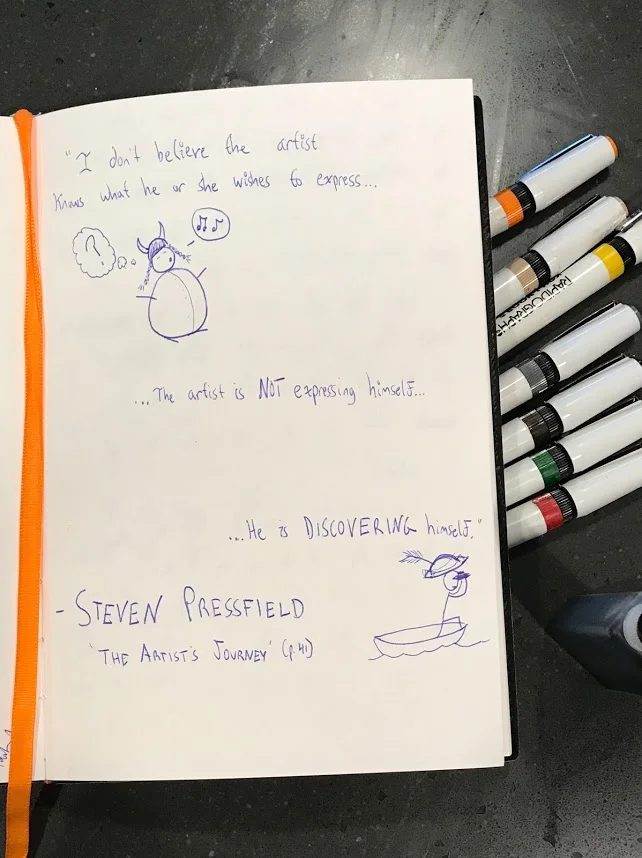 "I don't believe the artist
knows what he or she wishes to express...
?
...The artist is NOT expressing himself...
...He is DISCOVERING himself."
- STEVEN PRESSFIELD
"THE ARTIST'S JOURNEY" (p.41)
RAPIDOGRAPH